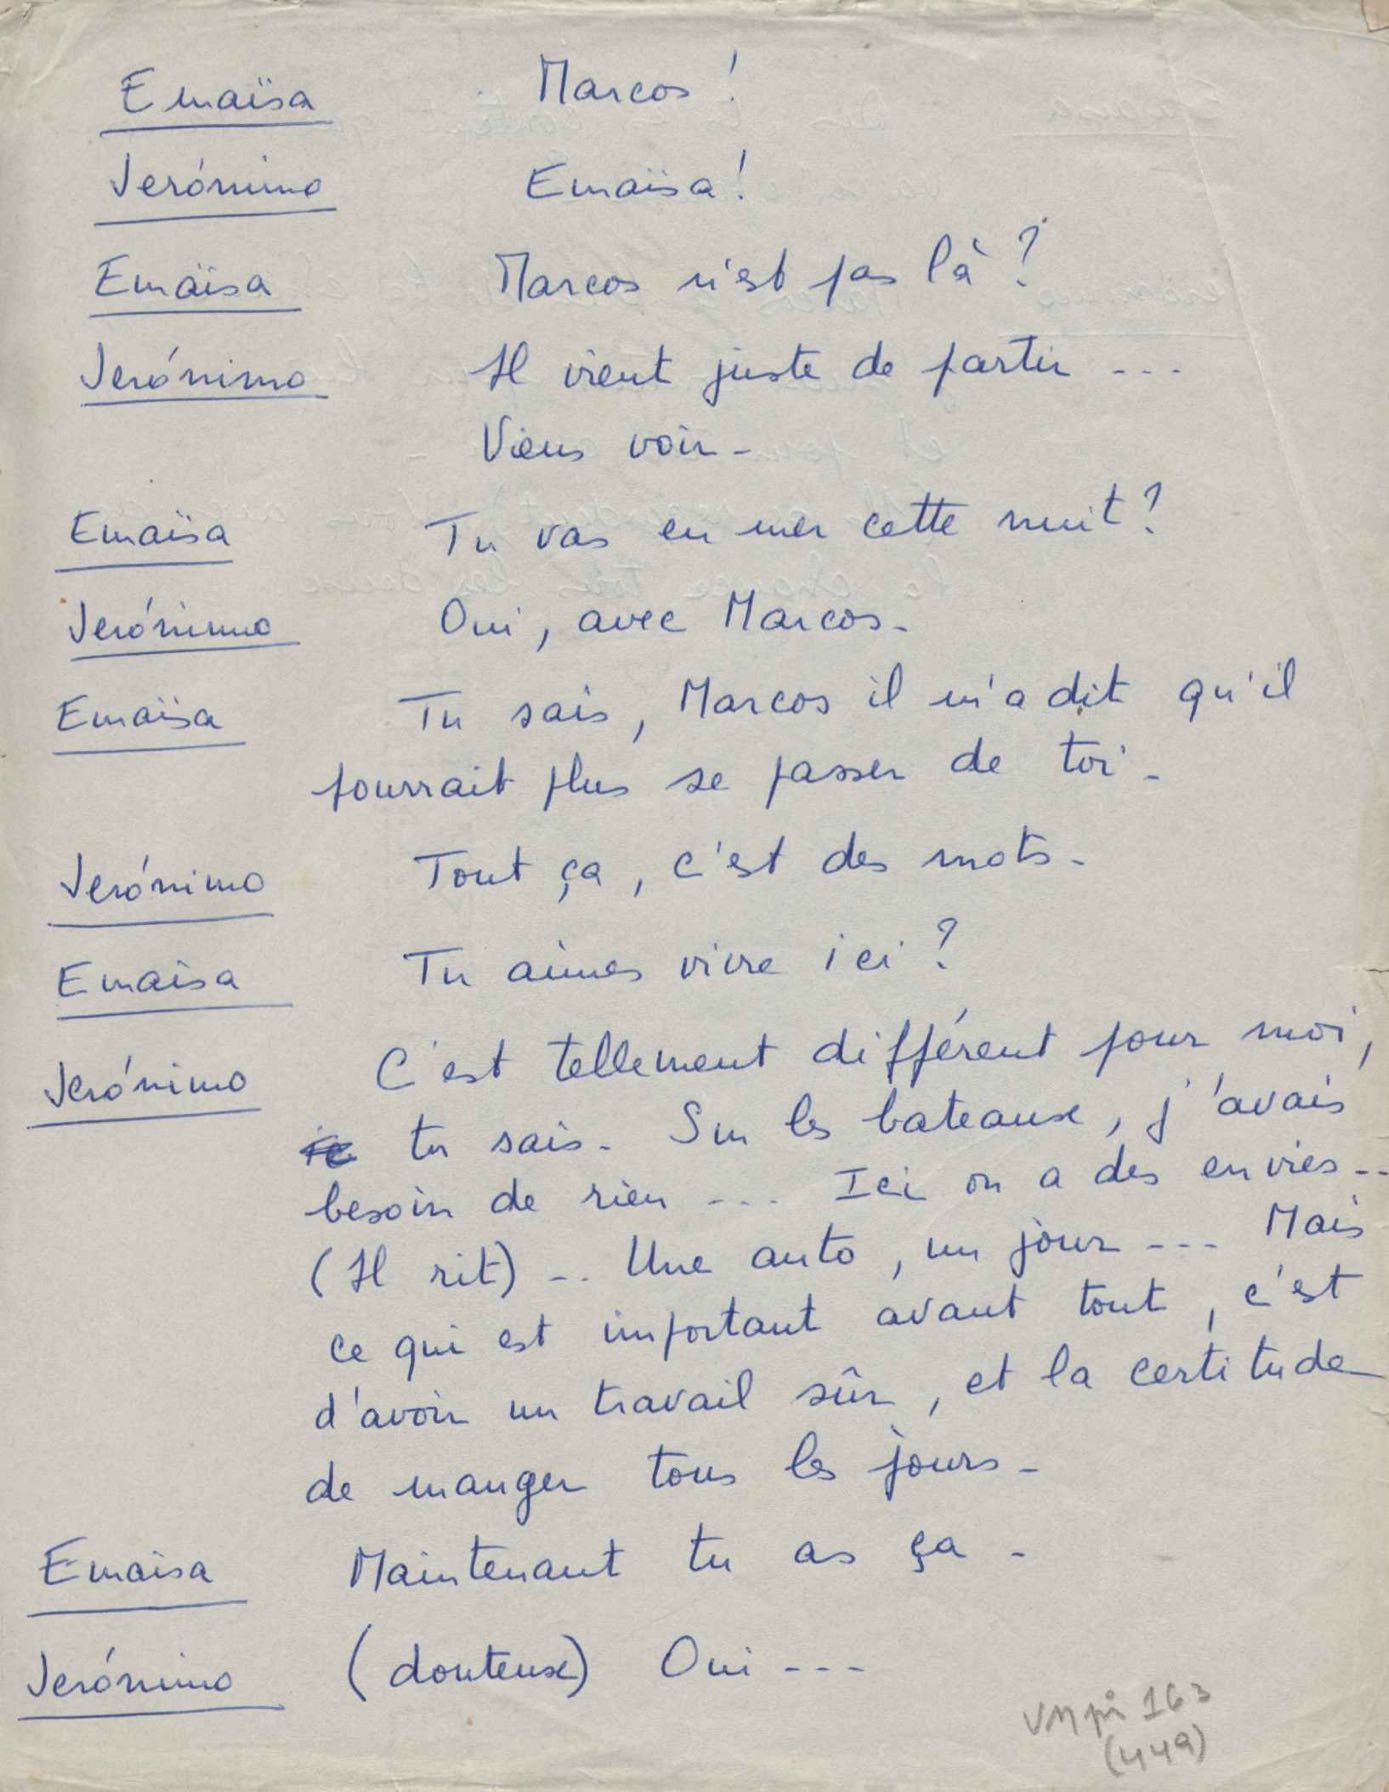 Emaïsa Marcos !
Jerónimo Emaïsa !
Emaïsa Marcos n'est pas là ?
Jerónimo Il vient juste de partir ...
Viens voir -
Emaïsa Tu vas en mer cette nuit ?
Jerónimo Oui, avec Marcos -
Emaïsa Tu sais, Marcos il m'a dit qu'il
pourrait plus se passer de toi -
Jerónimo Tout ça, c'est des mots -
Emaïsa Tu aimes vivre ici ?
Jerónimo C'est tellement différent pour moi,
tu sais - Sur les bateaux, j'avais
besoin de rien ... Ici on a des envies ..
(Il rit) .. Une auto, un jour ... Mais
ce qui est important avant tout, c'est
d'avoir un travail sûr, et la certitude
de manger tous les jours -
Emaïsa Maintenant tu as ça -
Jerónimo (douteux) Oui ...
163
(449)